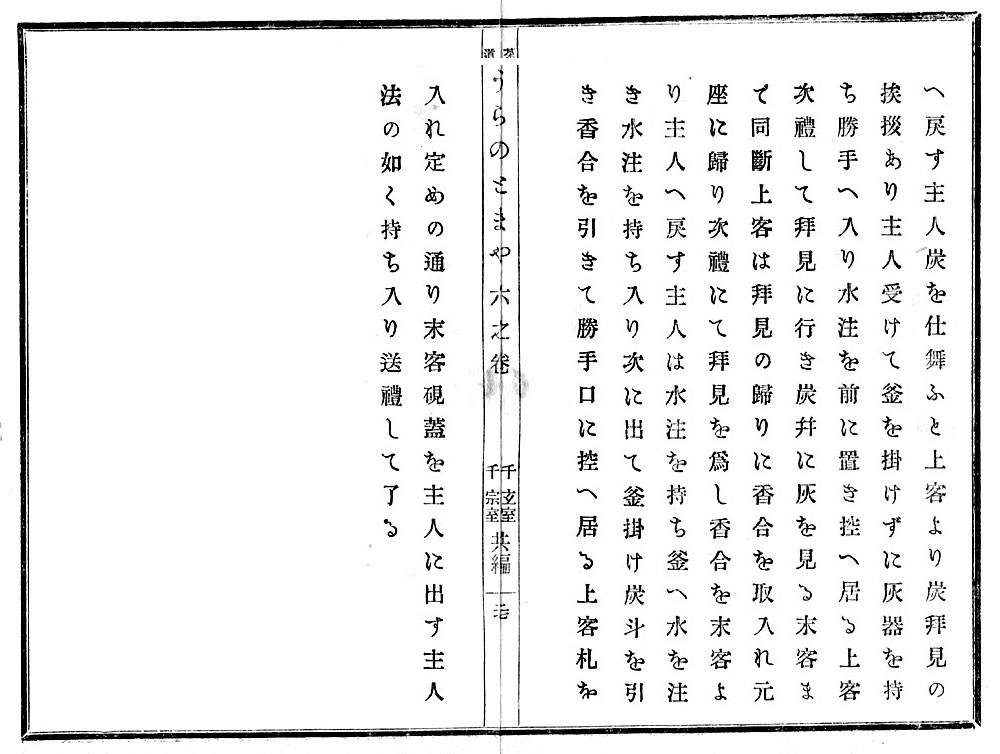 へ戻す主人炭を仕舞ふと上客より炭拜見の
挨拶あり主人受けて釜を掛けずに灰器を持
ち勝手へ入り水注を前に置き控へ居る上客
次禮して拜見に行き炭幷に灰を見る末客ま
で同斷上客は拜見の歸りに香合を取入れ元
座に歸り次禮にて拜見を爲し香合を末客よ
り主人へ戻す主人は水注を持ち釜へ水を注
き水注を持ち入り次に出て釜掛け炭斗を引
き香合を引きて勝手口に控へ居る上客札を
茶道
うらのとまや六之卷
千玄室
千宗室
共編
入れ定めの通り末客硯蓋を主人に出す主人
法の如く持ち入り送禮して了る